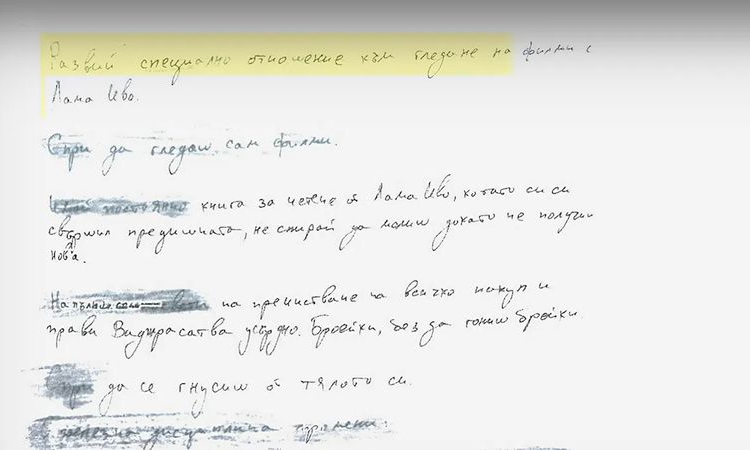 Развий специално отношение към гледане на филми с
Лама Иво.
Спри да гледаш сам филми.
Имай постоянно книга за четене от Лама Иво, когато си си
свършил предишната, не спирай да молиш докато не получиш
нова.
на пречистване на всичко накуп и
прави Ваджрасатва усърдно. Бройки, без да гониш бройки
Спри да се гнусиш от тялото си.
дисциплина